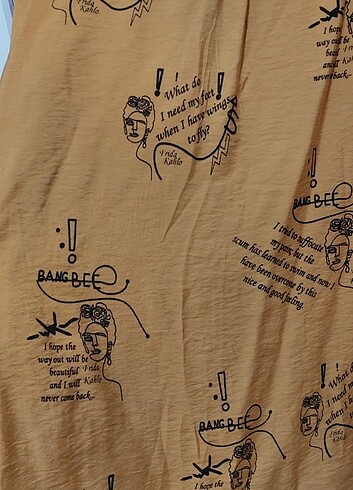 Frida
Kahlo
I hope
way out will be
beau
and
never back..
What do
I need my feet
when I have wings
to fly?
Frida
Kahlo
BANG BEE
I tried to suffocate
my pain, but the
scum has learned to swim and now I
have been overcome by this
nice and good feeling.
BANG BEE
I hope the
way out will be
beautiful
and I will
never come back...
Frida
Kahlo
What d
I need
when
Frida
Kahlo
BANG BEE
I hope the